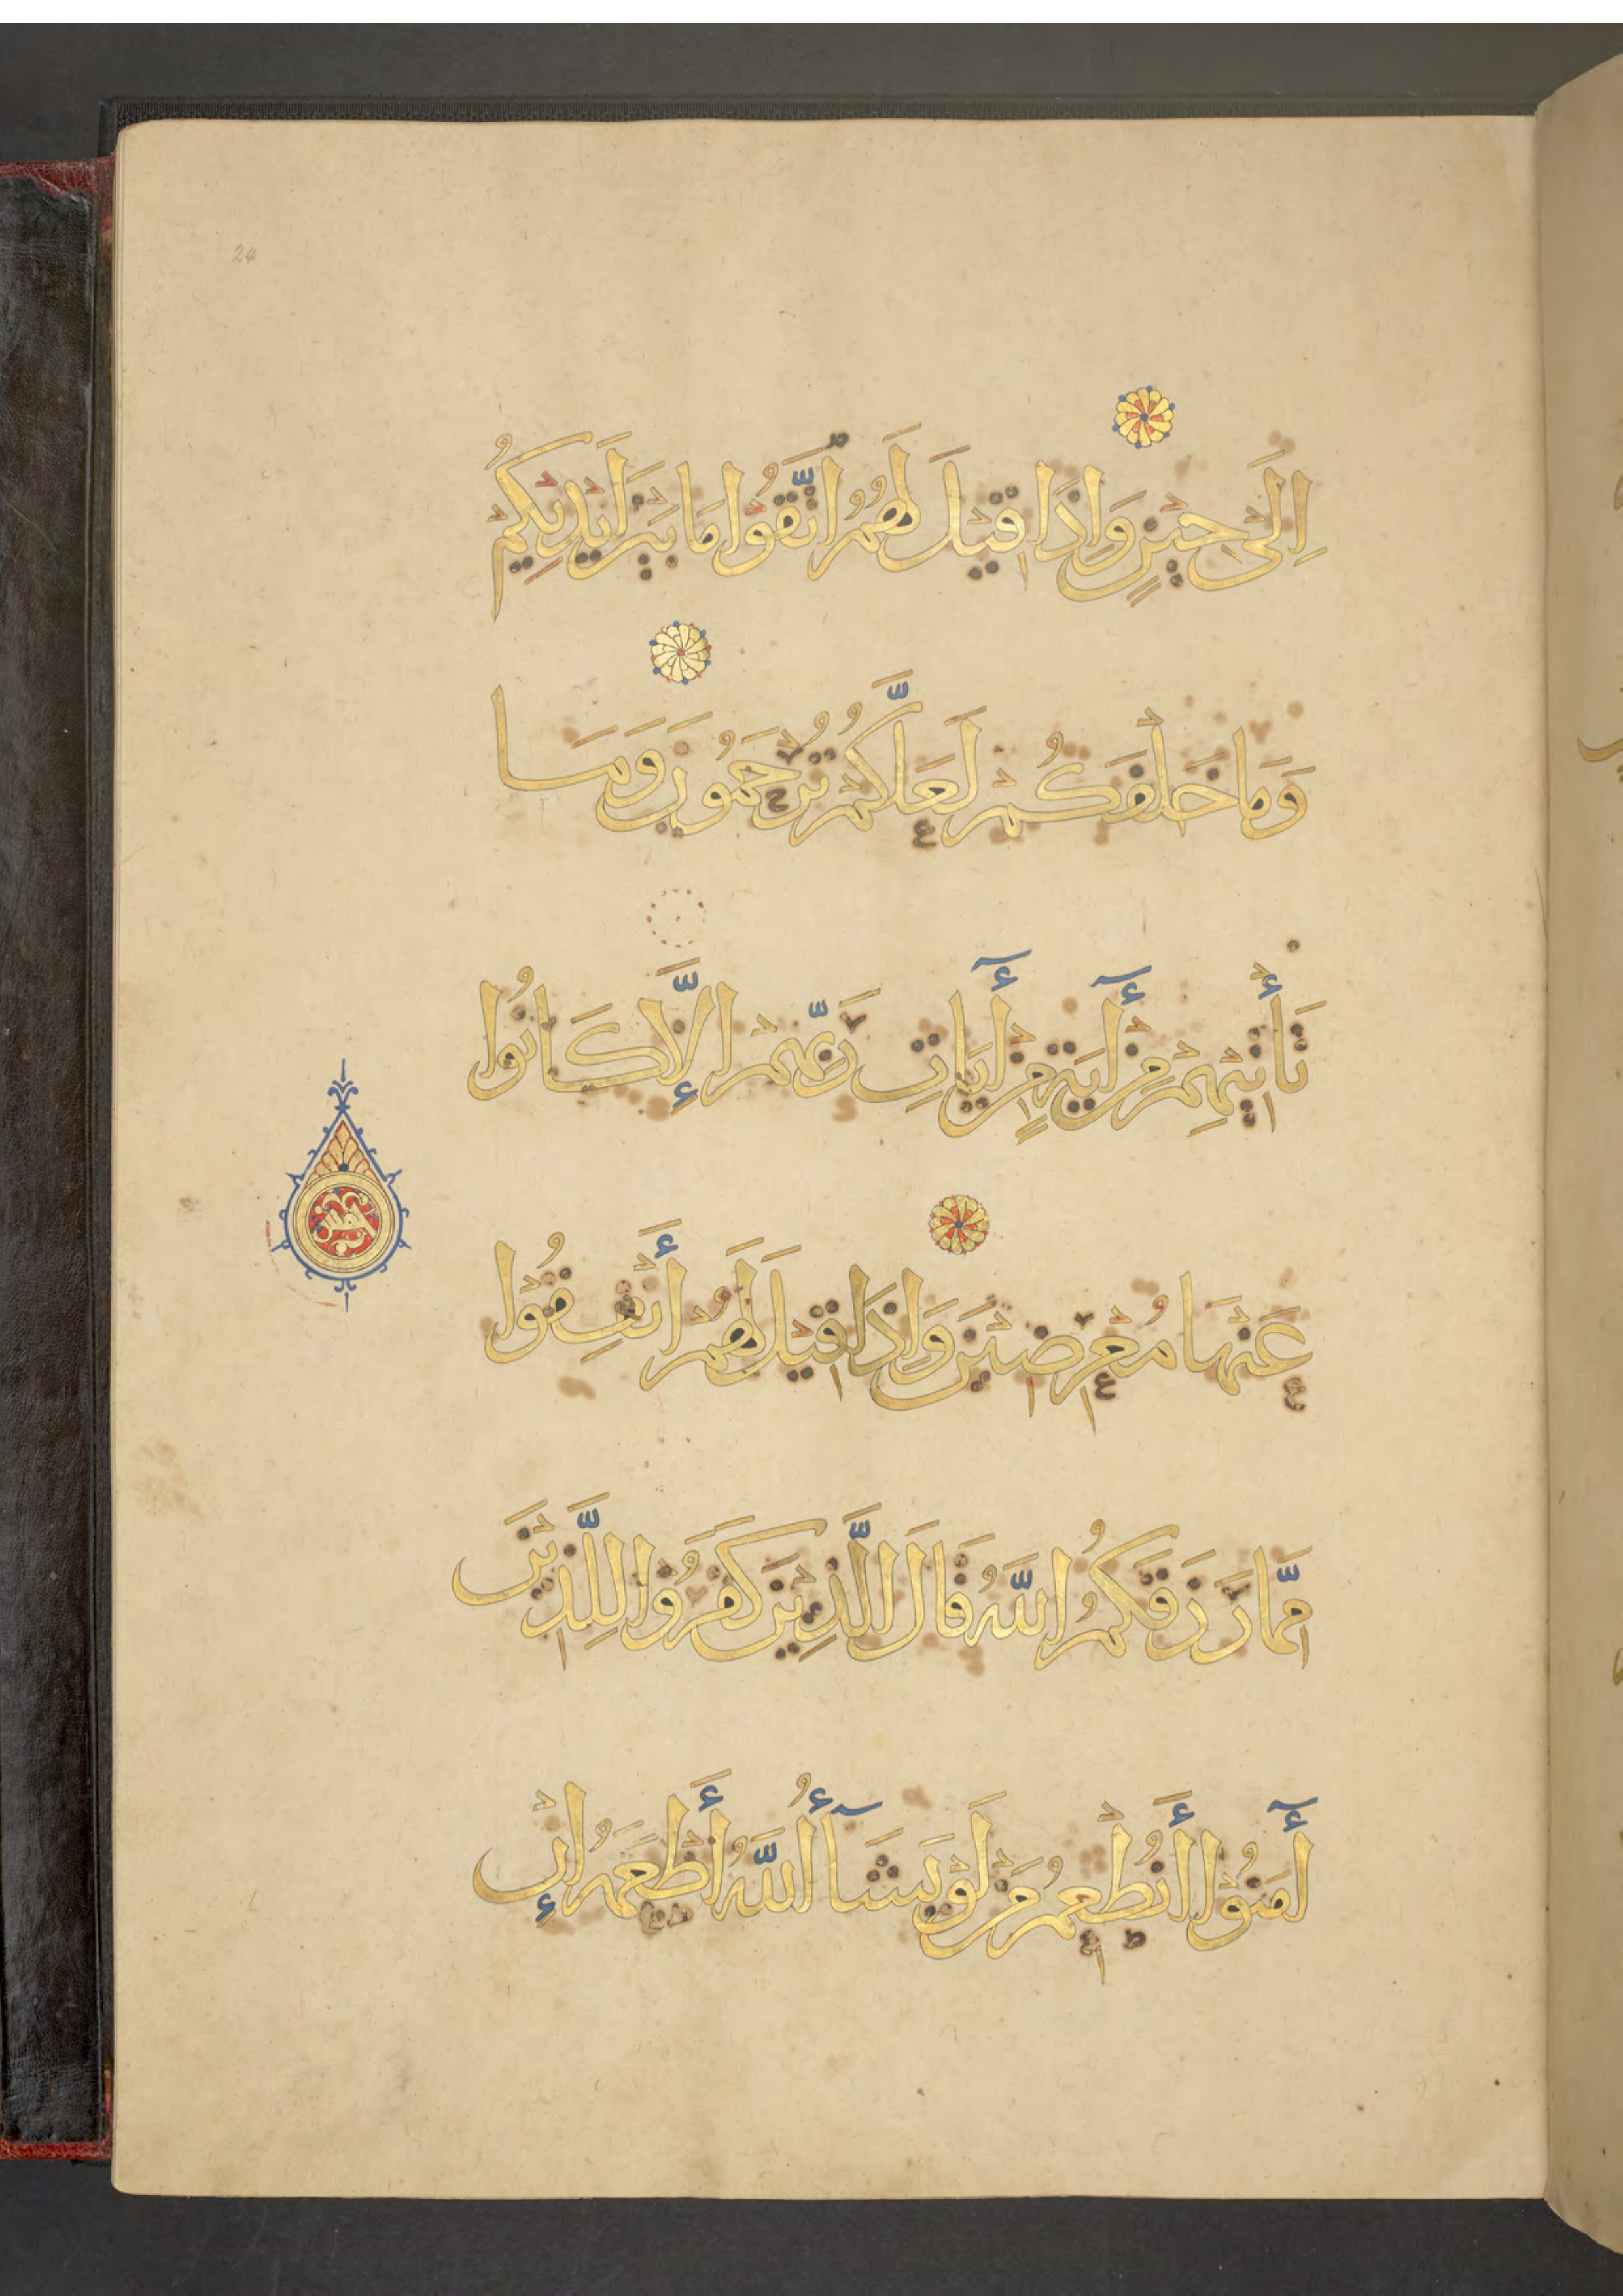 24
اِلَى حِيْنٍ وَاِذَا قِيْلَ لَهُمُ اتَّقُوْا مَا بَيْنَ اَيْدِيْكُمْ
وَمَا خَلْفَكُمْ لَعَلَّكُمْ تُرْحَمُوْنَ وَمَا
تَأْتِيْهِمْ مِنْ أٓيَةٍ مِنْ أٓيَاتِ رَبِّهِمْ اِلَّا كَانُوْا
عَنْهَا مُعْرِضِيْنَ وَاِذَا قِيْلَ لَهُمْ أَنْفِقُوْا
مِمَّا رَزَقَكُمُ اللَّهُ قَالَ الَّذِيْنَ كَفَرُوْا لِلَّذِيْنَ
أٓمَنُوْا أَنُطْعِمُ مَنْ لَوْ يَشَآأُ اللَّهُ أَطْعَمَهُ اِنْ